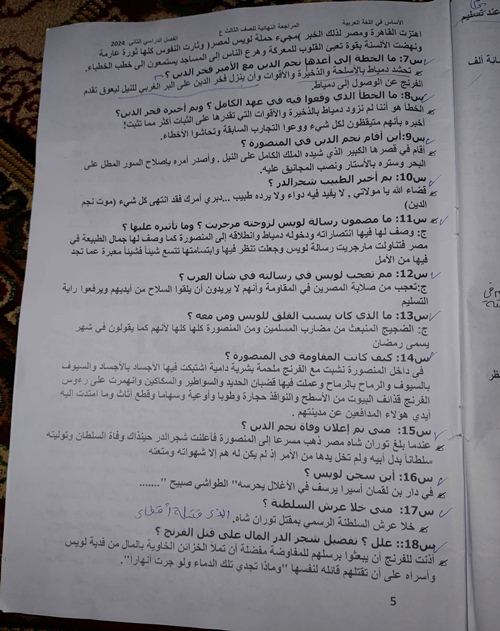 الأساس في اللغة العربية
المراجعة النهائية للصف الثالث ع
الفصل الدراسي الثاني 2024
اهتزت القاهرة ومصر لذلك الخبر )مجيء حملة لويس لمصر( وثارت النفوس كلها ثورة عارمة
ونهضت الألسنة بقوة تعبى القلوب للمعركة وهرع الناس إلى المساجد يستمعون إلى خطب الخطباء.
س7: ما الخطة إلى أعدها نجم الدين مع الأمير فخر الدين ؟
تحشد دمياط بالأسلحة والذخيرة والأقوات وأن ينزل فخر الدين على البر الغربي للنيل ليعوق تقدم
الفرنج عن الوصول إلى دمياط
س8: ما الخطأ الذي وقعوا فيه في عهد الكامل ؟ وبم أخبره فخر الدين؟
الخطأ هو أننا لم نزود دمياط بالذخيرة والأقوات التي تقدرها على الثبات أكثر مما تثبت!
أخبره بأنهم متيقظون لكل شيء ووعوا التجارب السابقة وتحاشوا الأخطاء.
س9: أين أقام نجم الدين في المنصورة ؟
أقام في قصرها الكبير الذي شيده الملك الكامل على النيل . وأصدر أمره بإصلاح السور المطل على
البحر وستره بالأستار ونصب المجانيق عليه.
س10: بم أخبر الطبيب شجرالدر ؟
قضاء الله يا مولاتي , لا يفيد فيه دواء ولا يرده طبيب ...دبري أمرك فقد انتهى كل شيء (موت نجم
الدين)
س11: ما مضمون رسالة لويس لزوجته مرجريت ؟ وما تأثيره عليها ؟
ج: وصف لها فيها انتصاراته ودخوله دمياط وانطلاقه إلى المنصورة كما وصف لها جمال الطبيعة في
مصر فتناولت مارجريت رسالة لويس وجعلت تنظر فيها وابتسامتها تتسع شيئا فشيئا معبرة عما تجد
فيها من الأمل
س12: مم تعجب لويس في رسالته في شأن العرب ؟
ج:تعجب من صلابة المصرين في المقاومة وأنهم لا يريدون أن يلقوا السلاح من أيديهم ويرفعوا راية
التسليم
س13: ما الذي كان يسبب القلق للويس ومن معه ؟
ج: الضجيج المنبعث من مضارب المسلمين ومن المنصورة كلها كلها لأنهم كما يقولون في شهر
يسمى رمضان
س14: كيف كانت المقاومة في المنصورة ؟
في داخل المنصورة نشبت مع الفرنج ملحمة بشرية دامية اشتبكت فيها الأجساد بالأجساد والسيوف
بالسيوف والرماح بالرماح وعملت فيها قضبان الحديد والسواطير والسكاكين وانهمرت على رءوس
الفرنج قذائف البيوت من الأسطح والنوافذ حجارة وطوبا وأوعية وسهاما وقطع أثاث وما امتدت إليه
أيدي هؤلاء المدافعين عن مدينتهم .
س15: متى تم إعلان وفاة نجم الدين ؟
عندما بلغ توران شاه مصر ذهب مسرعا إلى المنصورة فأعلنت شجرالدر حينذاك وفاة السلطان وتوليته
سلطانا بدل أبيه ولم تخل يدها من الأمر إذ لم يكن له هم إلا شهواته ومتعته
س16: أين سجن لويس ؟
في دار بن لقمان أسيرا يرسف في الأغلال يحرسه" الطواشي صبيح ".......
س17: متى خلا عرش السلطنة ؟
خلا عرش السلطنة الرسمي بمقتل توران شاه. الذي قتله أقطاي
س18:: علل ؟ تفضيل شجر الدر المال على قتل الفرنج ؟
أذنت للفرنج أن يبعثوا برسلهم للمفاوضة مفضلة أن تملأ الخزائن الخاوية بالمال من فدية لويس
وأسراه على أن تقتلهم قائله لنفسها "وماذا تجدي تلك الدماء ولو جرت أنهارا".
5
عند تسليم